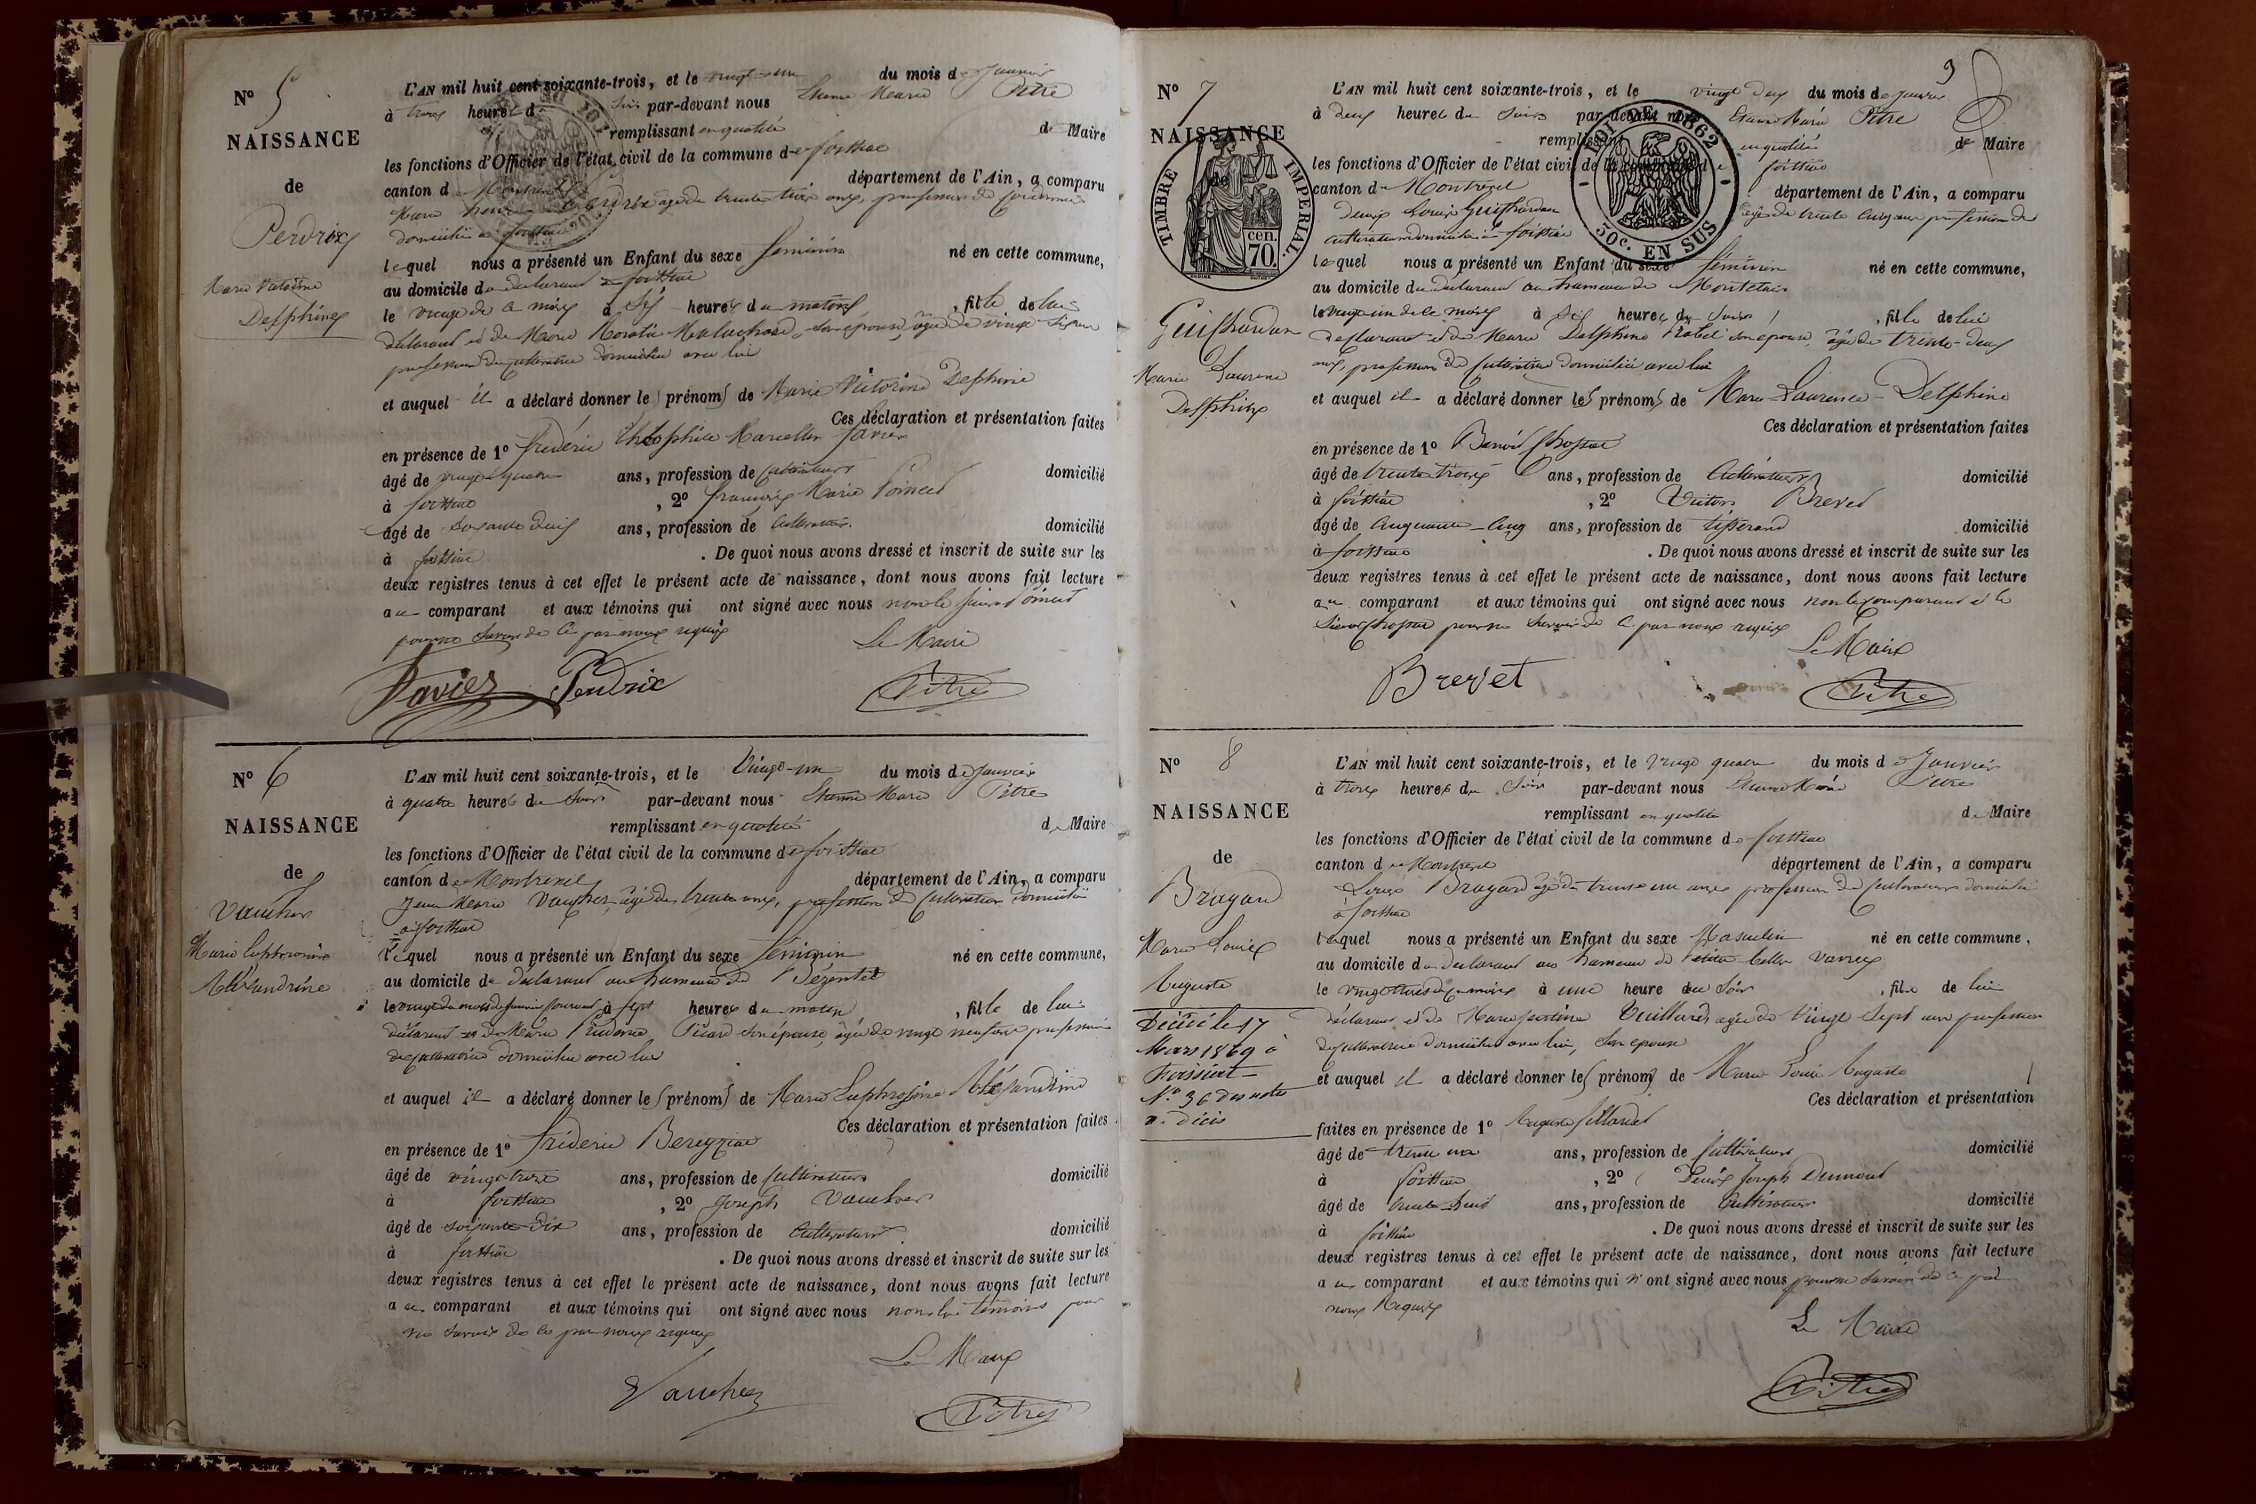 N° 5
NAISSANCE
de
Perdrix
Marie Victorine
Delphine
L'AN mil huit cent soixante-trois, et le vingt-un du mois de Janvier
à trois heures du soir par-devant nous Etienne Marie Pitre
remplissant en qualité de Maire
les fonctions d'Officier de l'état civil de la commune de foissiat
canton de Montrevel département de l'Ain, a comparu
Perdrix âgé de trente trois ans, profession de
domicilié à foissiat
lequel nous a présenté un Enfant du sexe féminin né en cette commune,
au domicile du déclarant à foissiat
le vingt de ce mois à dix heures du matin, fille de lui
déclarant et de Marie son épouse, âgée de vingt
profession de cultivatrice domiciliée avec lui
et auquel il a déclaré donner les prénoms de Marie Victorine Delphine
Ces déclaration et présentation faites
en présence de 1° frédéric Théophile Marcellin favier
âgé de vingt quatre ans, profession de Cultivateur domicilié
à foissiat, 2° françois Marie Poincet
âgé de soixante ans, profession de Cultivateur domicilié
à foissiat. De quoi nous avons dressé et inscrit de suite sur les
deux registres tenus à cet effet le présent acte de naissance, dont nous avons fait lecture
au comparant et aux témoins qui ont signé avec nous non le sieur Poincet
pour ne savoir de ce par nous requis
Le Maire
Favier Perdrix Pitre
N° 6
NAISSANCE
de
Vaucher
Marie Euphrosine
Alexandrine
L'AN mil huit cent soixante-trois, et le Vingt-un du mois de Janvier
à quatre heures du soir par-devant nous Etienne Marie Pitre
remplissant en qualité de Maire
les fonctions d'Officier de l'état civil de la commune de foissiat
canton de Montrevel département de l'Ain, a comparu
Jean Marie Vaucher, âgé de trente ans, profession de Cultivateur domicilié
à foissiat
lequel nous a présenté un Enfant du sexe féminin né en cette commune,
au domicile du déclarant au hameau de
le vingt du mois de janvier courant à sept heures du matin, fille de lui
déclarant et de Marie Prudence Picard son épouse, âgée de vingt neuf ans profession
de cultivatrice domiciliée avec lui
et auquel il a déclaré donner les prénoms de Marie Euphrosine Alexandrine
Ces déclaration et présentation faites
en présence de 1° frédéric Bereyziat
âgé de vingt trois ans, profession de Cultivateur domicilié
à foissiat, 2° Joseph Vaucher
âgé de soixante-dix ans, profession de Cultivateur domicilié
à foissiat. De quoi nous avons dressé et inscrit de suite sur les
deux registres tenus à cet effet le présent acte de naissance, dont nous avons fait lecture
au comparant et aux témoins qui ont signé avec nous non témoins pour
ne savoir de ce par nous requis
Le Maire
Vaucher Pitre
9
N° 7
NAISSANCE
de
TIMBRE IMPERIAL.
70 cen.
LOI DE 1862
50c. EN SUS
Guichardan
Marie Laurence
Delphine
L'AN mil huit cent soixante-trois, et le vingt deux du mois de janvier
à deux heures du soir par-devant nous Etienne Marie Pitre
remplissant en qualité de Maire
les fonctions d'Officier de l'état civil de la commune de foissiat
canton de Montrevel département de l'Ain, a comparu
Denis Louis Guichardan âgé de trente cinq ans profession de
cultivateur domicilié à foissiat
lequel nous a présenté un Enfant du sexe féminin né en cette commune,
au domicile du déclarant au hameau de
le vingt un de ce mois à dix heures du soir, fille de lui
déclarant et de Marie Delphine son épouse, âgée de trente-deux
ans, profession de Cultivatrice domiciliée avec lui
et auquel il a déclaré donner les prénoms de Marie Laurence Delphine
Ces déclaration et présentation faites
en présence de 1° Benoit Chossat
âgé de trente trois ans, profession de Cultivateur domicilié
à foissiat, 2° Victor Brevet
âgé de Cinquante-Cinq ans, profession de tisserand domicilié
à foissiat. De quoi nous avons dressé et inscrit de suite sur les
deux registres tenus à cet effet le présent acte de naissance, dont nous avons fait lecture
au comparant et aux témoins qui ont signé avec nous non le comparant et le
sieur Chossat pour ne savoir de ce par nous requis
Le Maire
Brevet Pitre
N° 8
NAISSANCE
de
Brayard
Marie Louis
Auguste
Décédé le 17
Mars 1869 à
Foissiat
N° 36 des actes
de décès
L'AN mil huit cent soixante-trois, et le vingt quatre du mois de Janvier
à trois heures du soir par-devant nous Etienne Marie Pitre
remplissant en qualité de Maire
les fonctions d'Officier de l'état civil de la commune de foissiat
canton de Montrevel département de l'Ain, a comparu
Louis Brayard âgé de trente un ans profession de Cultivateur domicilié
à foissiat
lequel nous a présenté un Enfant du sexe Masculin né en cette commune,
au domicile du déclarant au hameau de
le vingt trois de ce mois à une heure du soir, fils de lui
déclarant et de Marie Vuillard âgée de Vingt Sept ans profession
de cultivatrice domiciliée avec lui, son épouse
et auquel il a déclaré donner les prénoms de Marie Louis Auguste
Ces déclaration et présentation
faites en présence de 1° Auguste
âgé de trente un ans, profession de Cultivateur domicilié
à foissiat, 2° Joseph Dumont
âgé de trente-huit ans, profession de Cultivateur domicilié
à foissiat. De quoi nous avons dressé et inscrit de suite sur les
deux registres tenus à cet effet le présent acte de naissance, dont nous avons fait lecture
au comparant et aux témoins qui n'ont signé avec nous pour ne savoir de ce par
nous Requis
Le Maire
Pitre